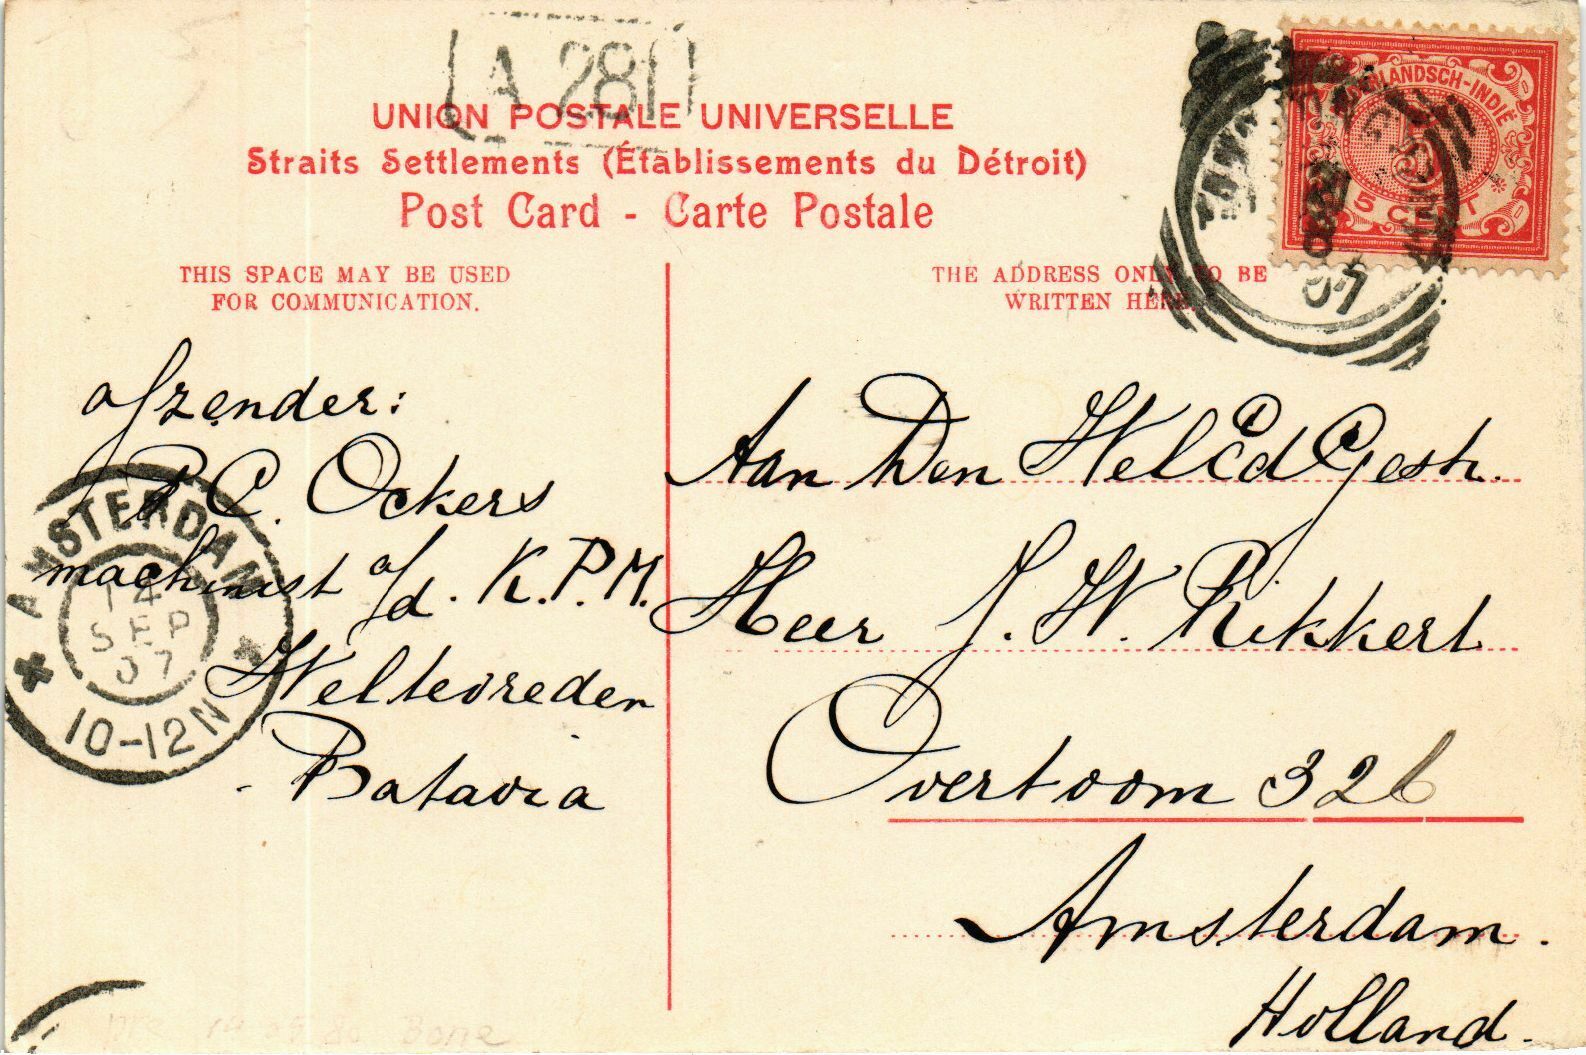 A 28
UNION POSTALE UNIVERSELLE
Straits Settlements (Établissements du Détroit)
Post Card - Carte Postale
NEDERLANDSCH-INDIË
5 CENT
07
THIS SPACE MAY BE USED
FOR COMMUNICATION.
THE ADDRESS ONLY TO BE
WRITTEN HERE.
afzender:
P. C. Ockers
machinist a/d. K.P.M.
Weltevreden
Batavia
AMSTERDAM
14
SEP
07
10-12N
Aan Den WelEdGestr.
Heer J. W. Rikkert
Overtoom 326
Amsterdam.
Holland.